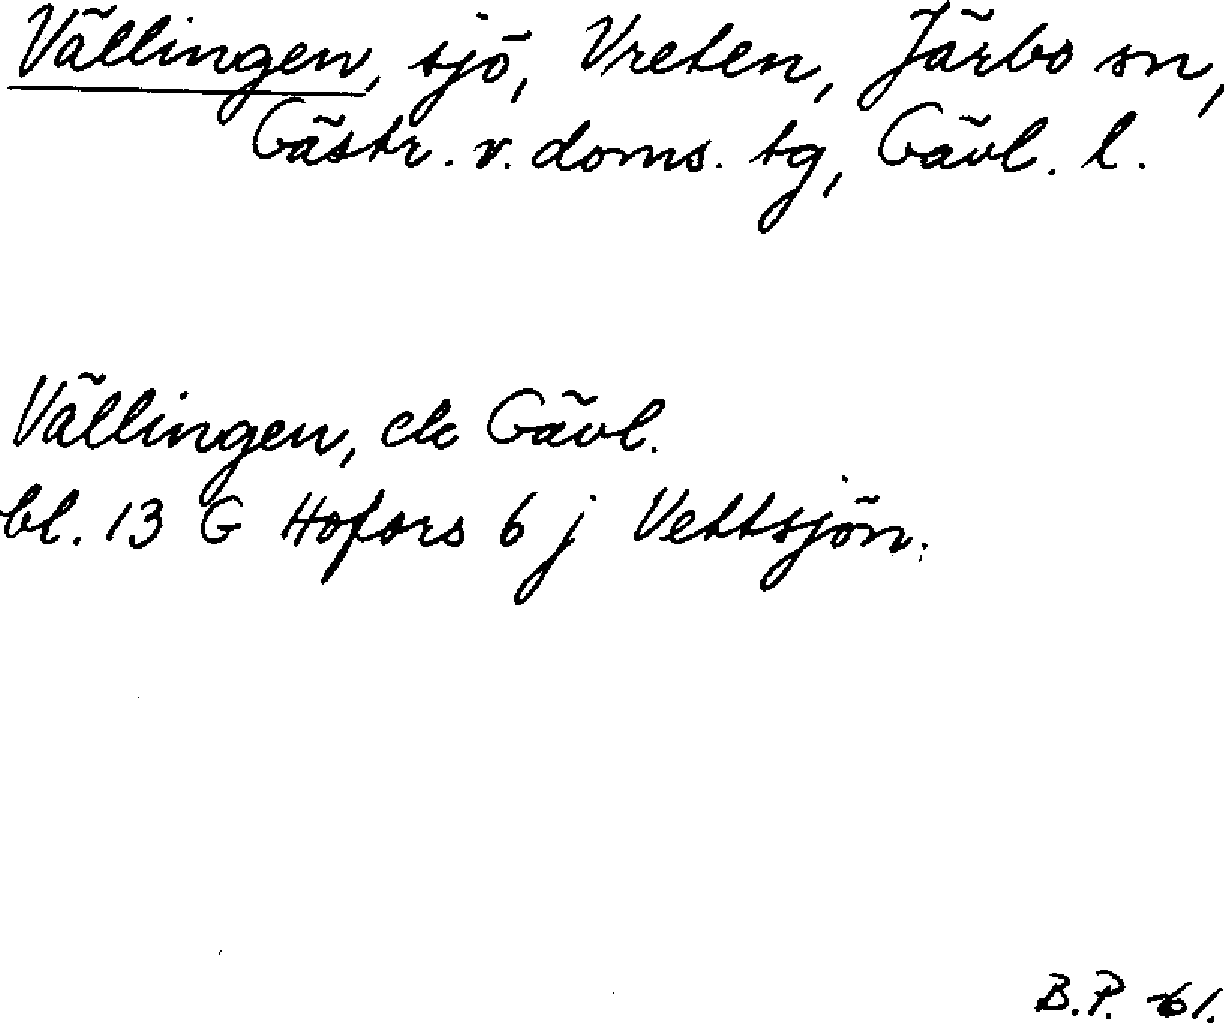 Vällingen, sjö, Vreten, Järbo sn,
Gästr. v. doms. tg, Gävl. l.
Vällingen, ek Gävl.
bl. 13 G Hofors 6 j Vettsjön.
B.P. -61.